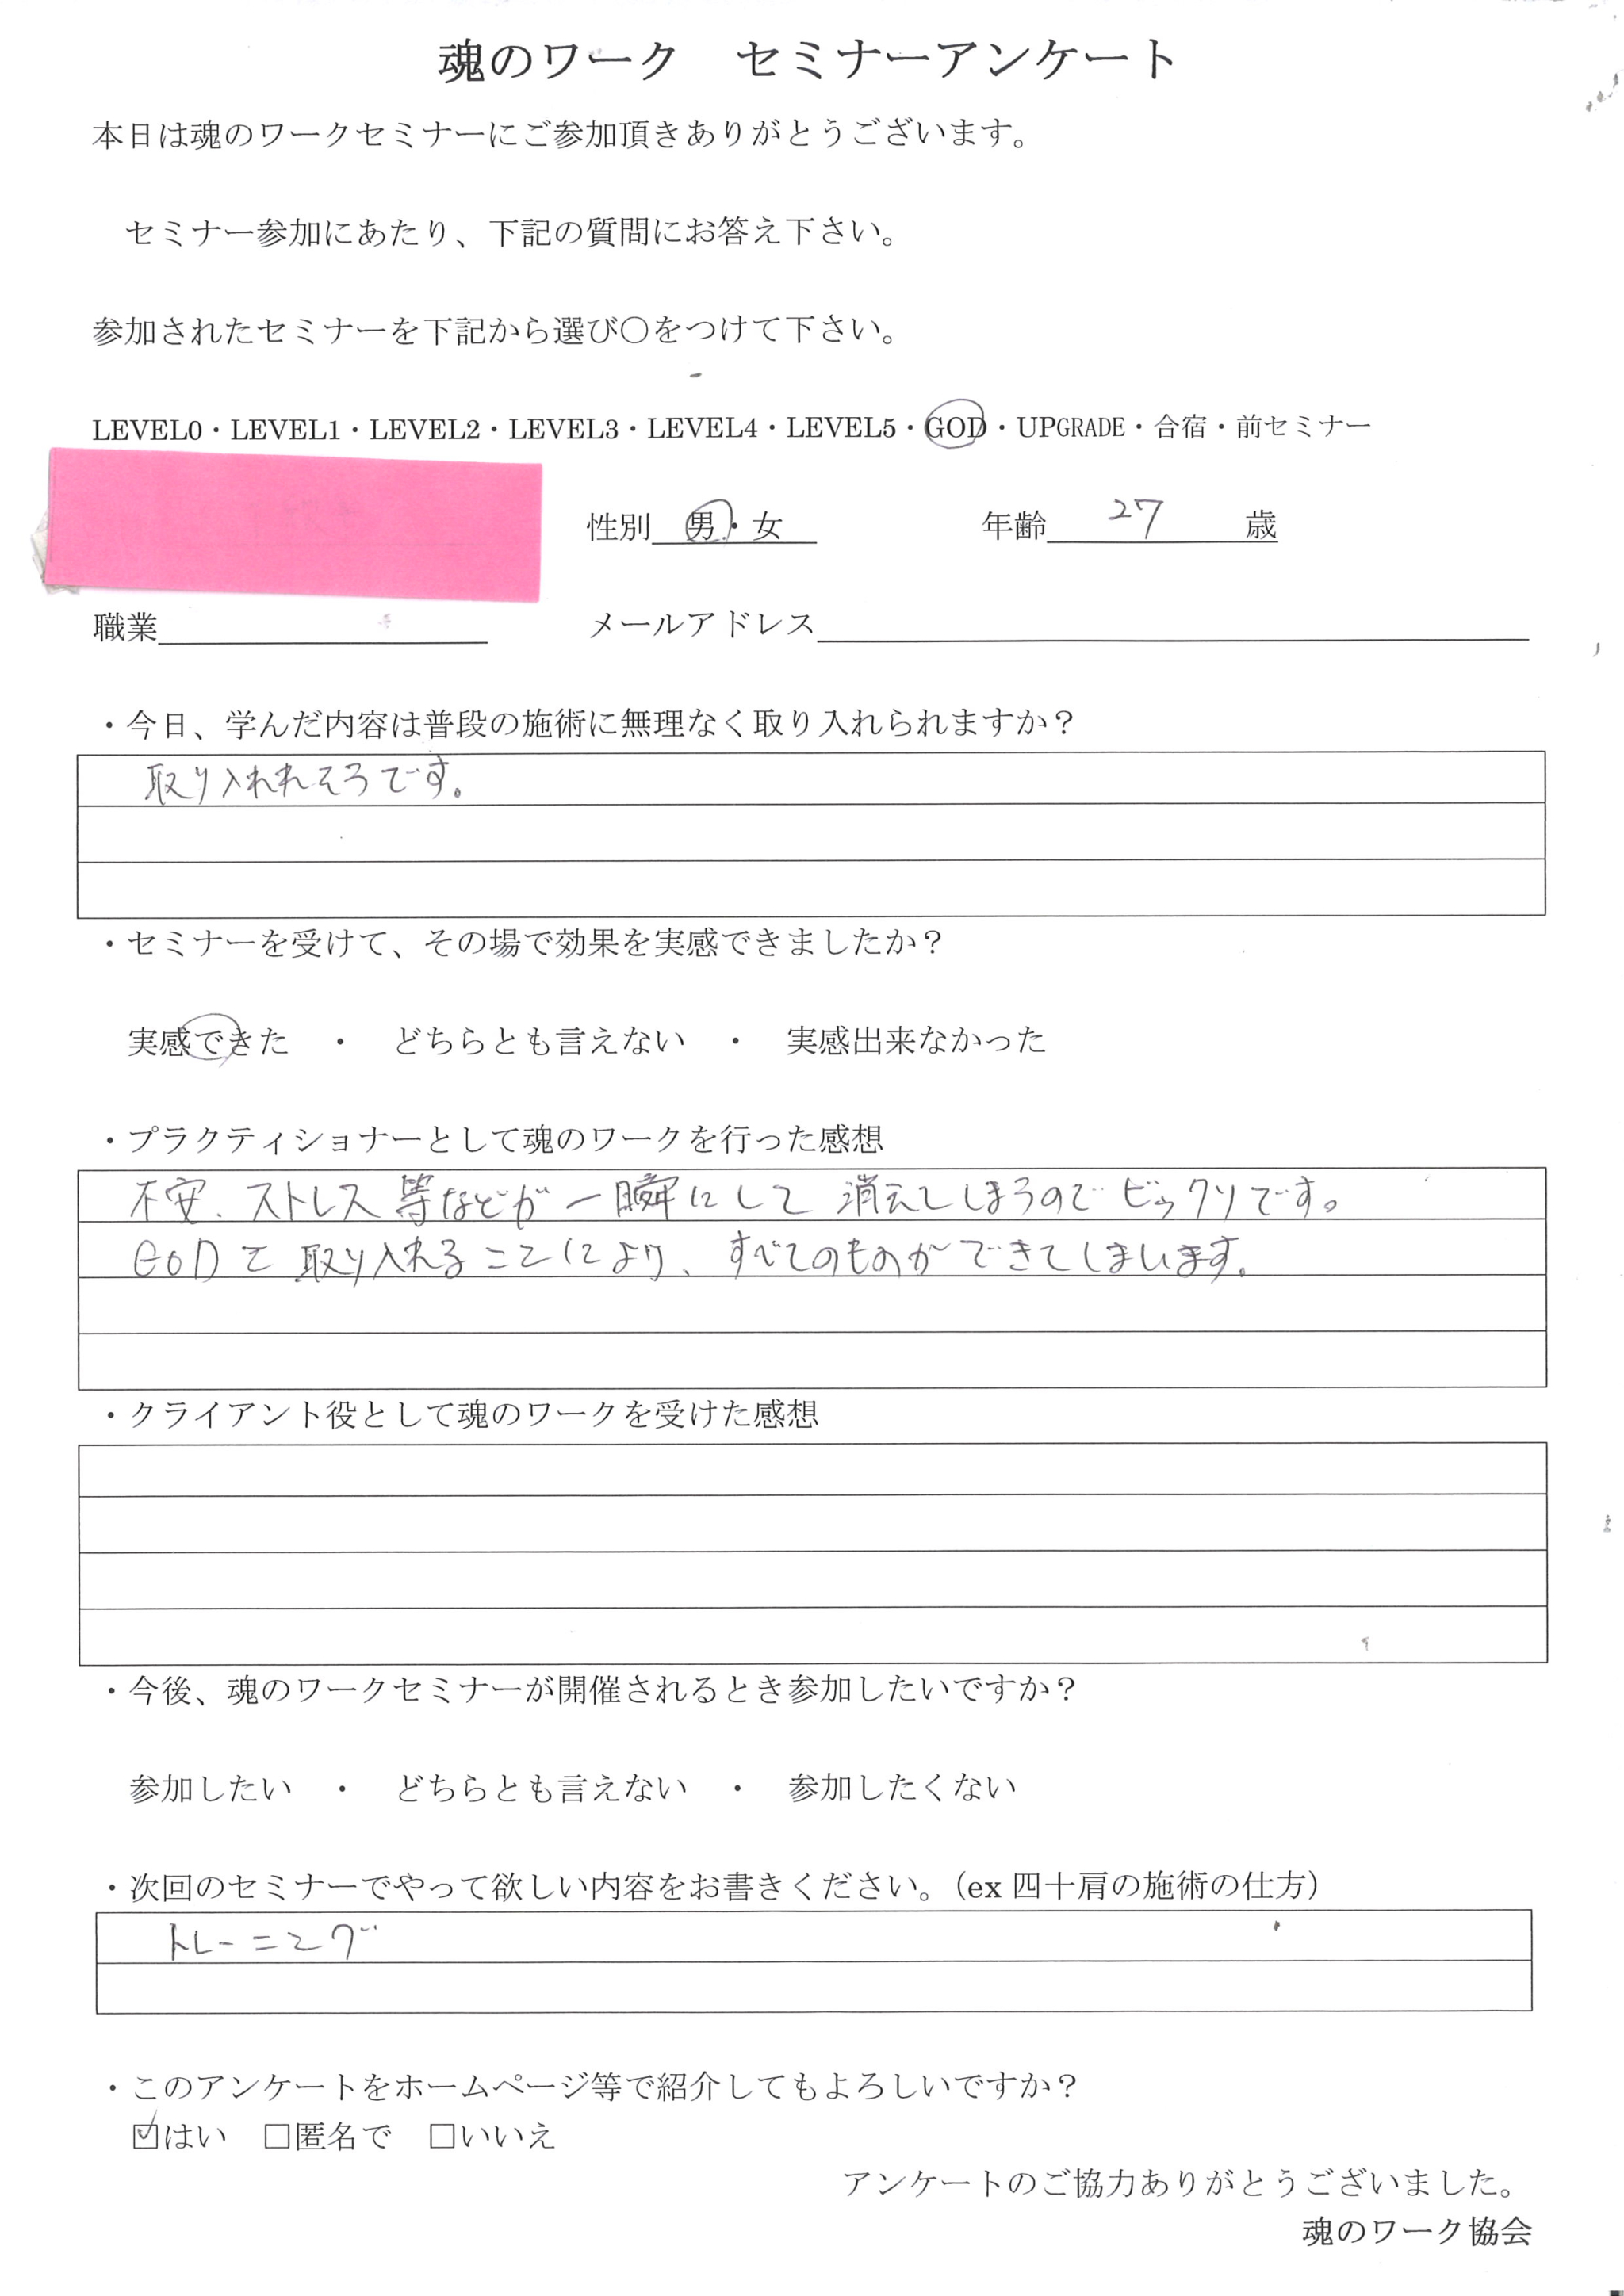 魂のワーク　セミナーアンケート
本日は魂のワークセミナーにご参加頂きありがとうございます。
セミナー参加にあたり、下記の質問にお答え下さい。
参加されたセミナーを下記から選び〇をつけて下さい。
LEVEL0・LEVEL1・LEVEL2・LEVEL3・LEVEL4・LEVEL5・GOD・UPGRADE・合宿・前セミナー
性別　男・女　年齢　27　歳
職業　メールアドレス
・今日、学んだ内容は普段の施術に無理なく取り入れられますか？
取り入れれそうです。
・セミナーを受けて、その場で効果を実感できましたか？
実感できた　・　どちらとも言えない　・　実感出来なかった
・プラクティショナーとして魂のワークを行った感想
不安、ストレス等などが一瞬にして消えてしまうのでビックリです。
GODを取り入れることにより、すべてのものができてしまいます。
・クライアント役として魂のワークを受けた感想
・今後、魂のワークセミナーが開催されるとき参加したいですか？
参加したい　・　どちらとも言えない　・　参加したくない
・次回のセミナーでやって欲しい内容をお書きください。（ex 四十肩の施術の仕方）
トレーニング
・このアンケートをホームページ等で紹介してもよろしいですか？
☑はい　□匿名で　□いいえ
アンケートのご協力ありがとうございました。
魂のワーク協会